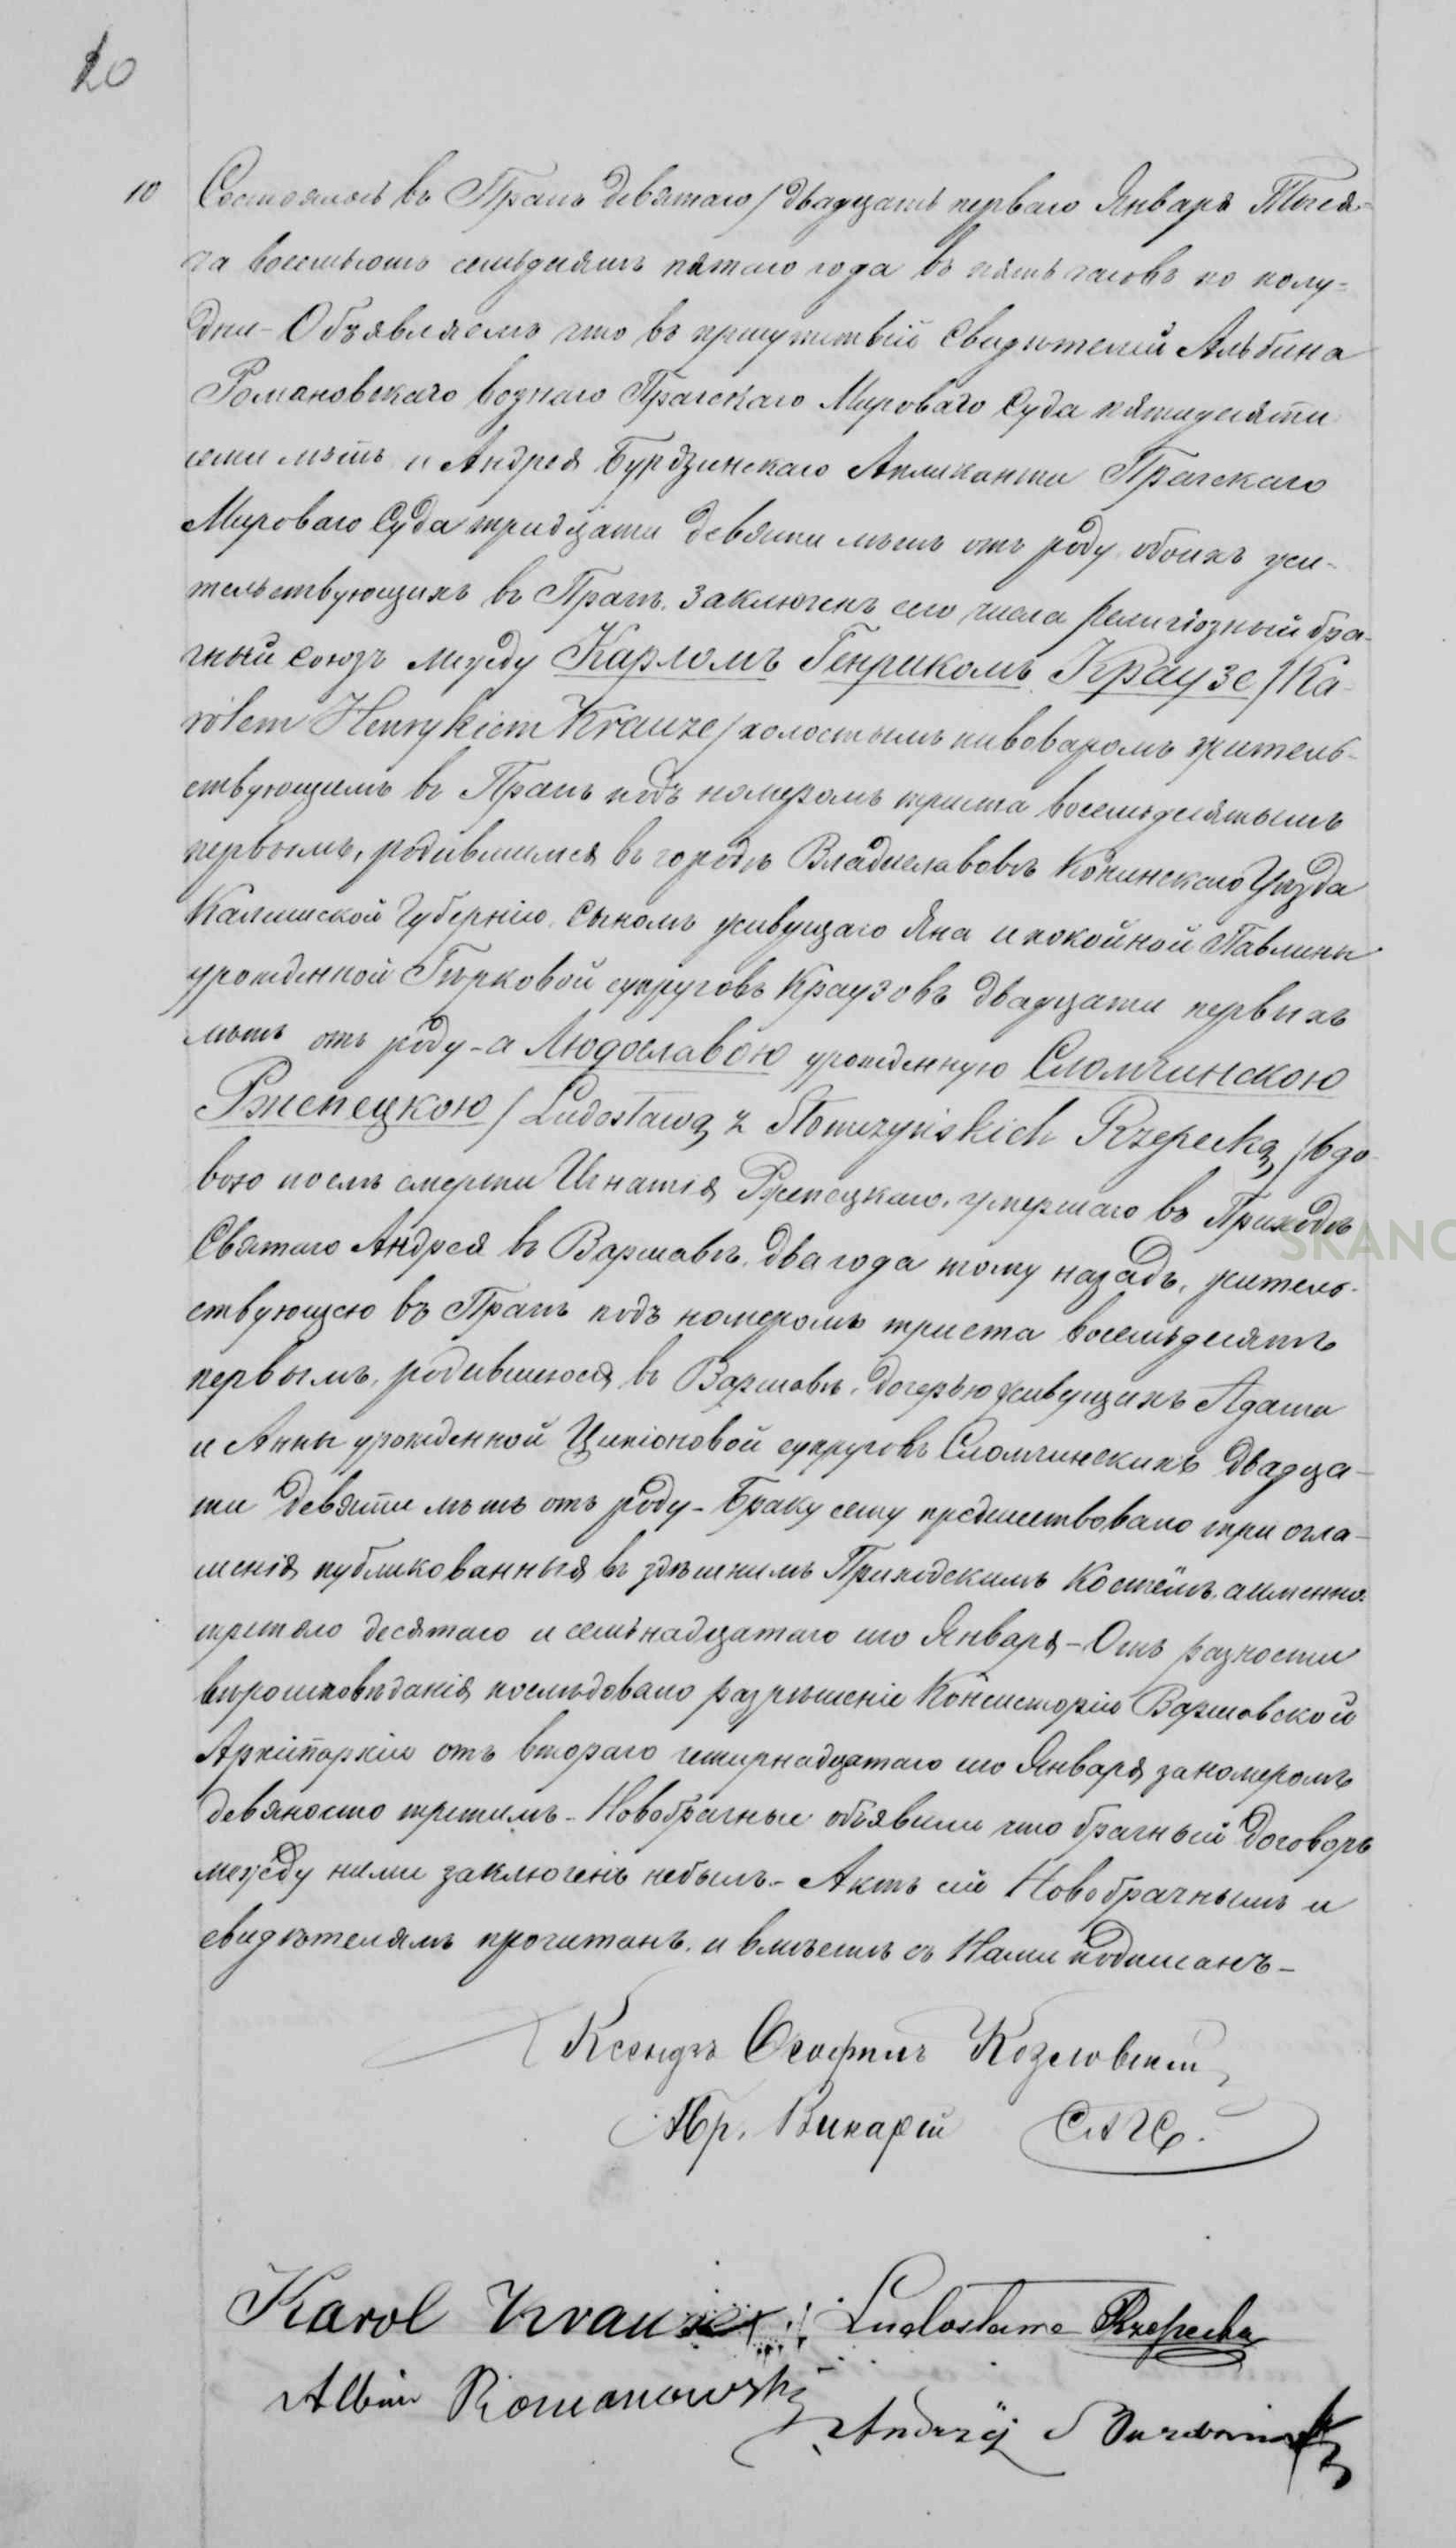 20
10 Состоялось въ Прагѣ девятаго / двадцать перваго Января Тыся-
ча восемьсотъ семьдесятъ пятаго года въ пять часовъ по полу-
дни - Объявляемъ что въ присутствіи свидѣтелей Альбина
Романовскаго вознаго Прагскаго Мироваго Суда пятидесяти
семи лѣтъ и Андрея Бурдзинскаго Апликанта Прагскаго
Мироваго Суда тридцати девяти лѣтъ отъ роду, обоихъ жи-
тельствующихъ въ Прагѣ, заключенъ сего числа религіозный бра-
чный союзъ между Карломъ Генрикомъ Краузе / Ka-
rolem Henrykiem Krauze / холостымъ пивоваромъ житель-
ствующимъ въ Прагѣ подъ номеромъ триста восемьдесятымъ
первымъ, родившимся въ городѣ Владиславовѣ Конинскаго Уѣзда
Калишской Губерніи, сыномъ живущаго Яна и покойной Павлины
урожденной Гирковой супруговъ Краузовъ двадцати первыхъ
лѣтъ отъ роду - а Людославою урожденную Сломчинскою
Ржепецкою / Ludosławą z Słomczyńskich Rzepecką / вдо-
вою послѣ смерти Игнатія Ржепецкаго, умершаго въ Приходѣ
Святаго Андрея въ Варшавѣ, два года тому назадъ, житель-
ствующею въ Прагѣ подъ номеромъ триста восемьдесятъ
первымъ, родившеюся въ Варшавѣ, дочерью живущихъ Адама
и Анны урожденной супруговъ Сломчинскихъ двадца-
ти девяти лѣтъ отъ роду - Браку сему предшествовало три огла-
шенія публикованныя въ здѣшнимъ Приходскимъ Костёлѣ, а именно:
третяго десятаго и семьнадцатаго сто Января - Отъ разности
вѣроисповѣданія послѣдовало разрѣшеніе Консисторіи Варшавской
Архіпархіи отъ втораго четырнадцатаго сто Января за номеромъ
девяносто третимъ - Новобрачные объявили что брачный договоръ
между ними заключенъ небылъ - Актъ сей Новобрачнымъ и
свидѣтелямъ прочитанъ, и вмѣстѣ съ Нами подписанъ -
Ксендзъ Ѳеофилъ Козловскій
Пр. Викарій САГС.
Karol Krauze Ludosława Rzepecka
Albin Romanowski
Andrzej Burdzinski
SKANO